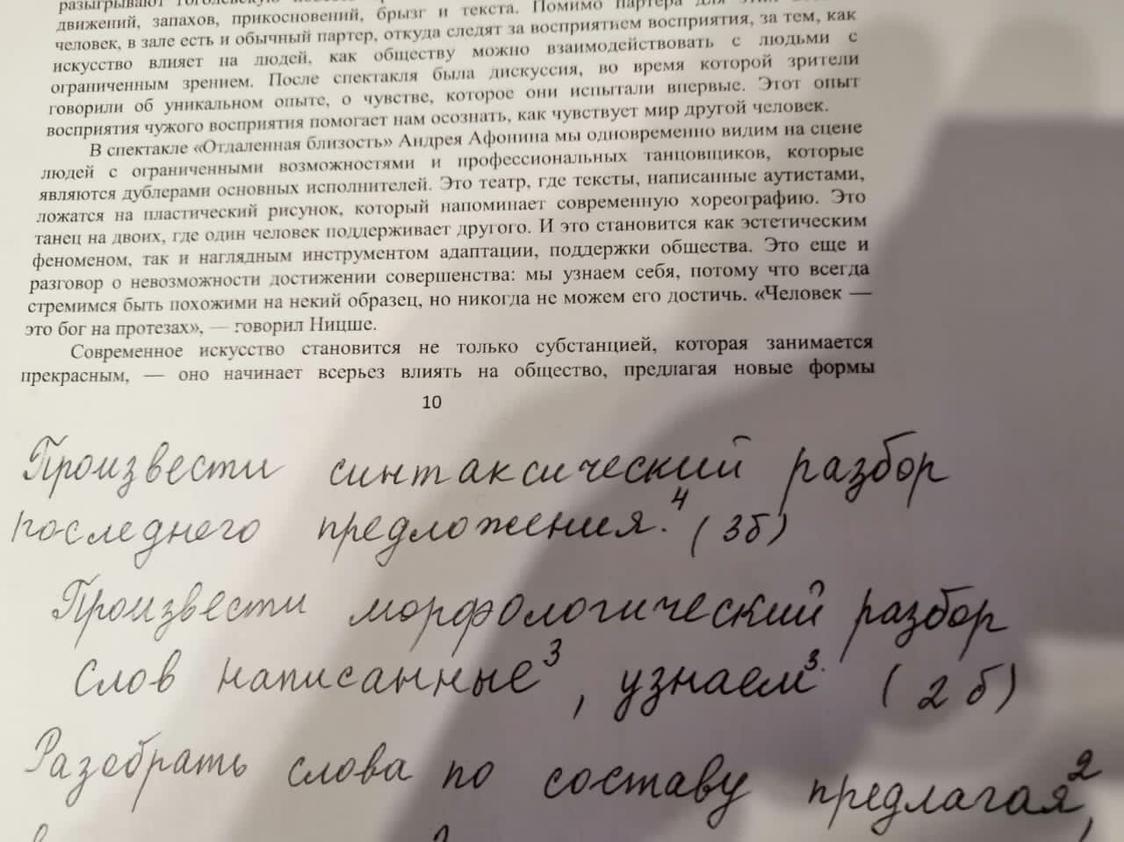 разыгрывают гоголевскую
движений, запахов, прикосновений, брызг и текста. Помимо партера для
человек, в зале есть и обычный партер, откуда следят за восприятием восприятия, за тем, как
искусство влияет на людей, как обществу можно взаимодействовать с людьми с
ограниченным зрением. После спектакля была дискуссия, во время которой зрители
говорили об уникальном опыте, о чувстве, которое они испытали впервые. Этот опыт
восприятия чужого восприятия помогает нам осознать, как чувствует мир другой человек.
В спектакле «Отдаленная близость» Андрея Афонина мы одновременно видим на сцене
людей с ограниченными возможностями и профессиональных танцовщиков, которые
являются дублерами основных исполнителей. Это театр, где тексты, написанные аутистами,
ложатся на пластический рисунок, который напоминает современную хореографию. Это
танец на двоих, где один человек поддерживает другого. И это становится как эстетическим
феноменом, так и наглядным инструментом адаптации, поддержки общества. Это еще и
разговор о невозможности достижении совершенства: мы узнаем себя, потому что всегда
стремимся быть похожими на некий образец, но никогда не можем его достичь. «Человек —
это бог на протезах», — говорил Ницше.
Современное искусство становится не только субстанцией, которая занимается
прекрасным, — оно начинает всерьез влиять на общество, предлагая новые формы
10
Произвести синтаксический разбор
последнего предложения.4 (3б)
Произвести морфологический разбор
слов написанные3, узнаем3. (2 б)
Разобрать слова по составу предлагая2,